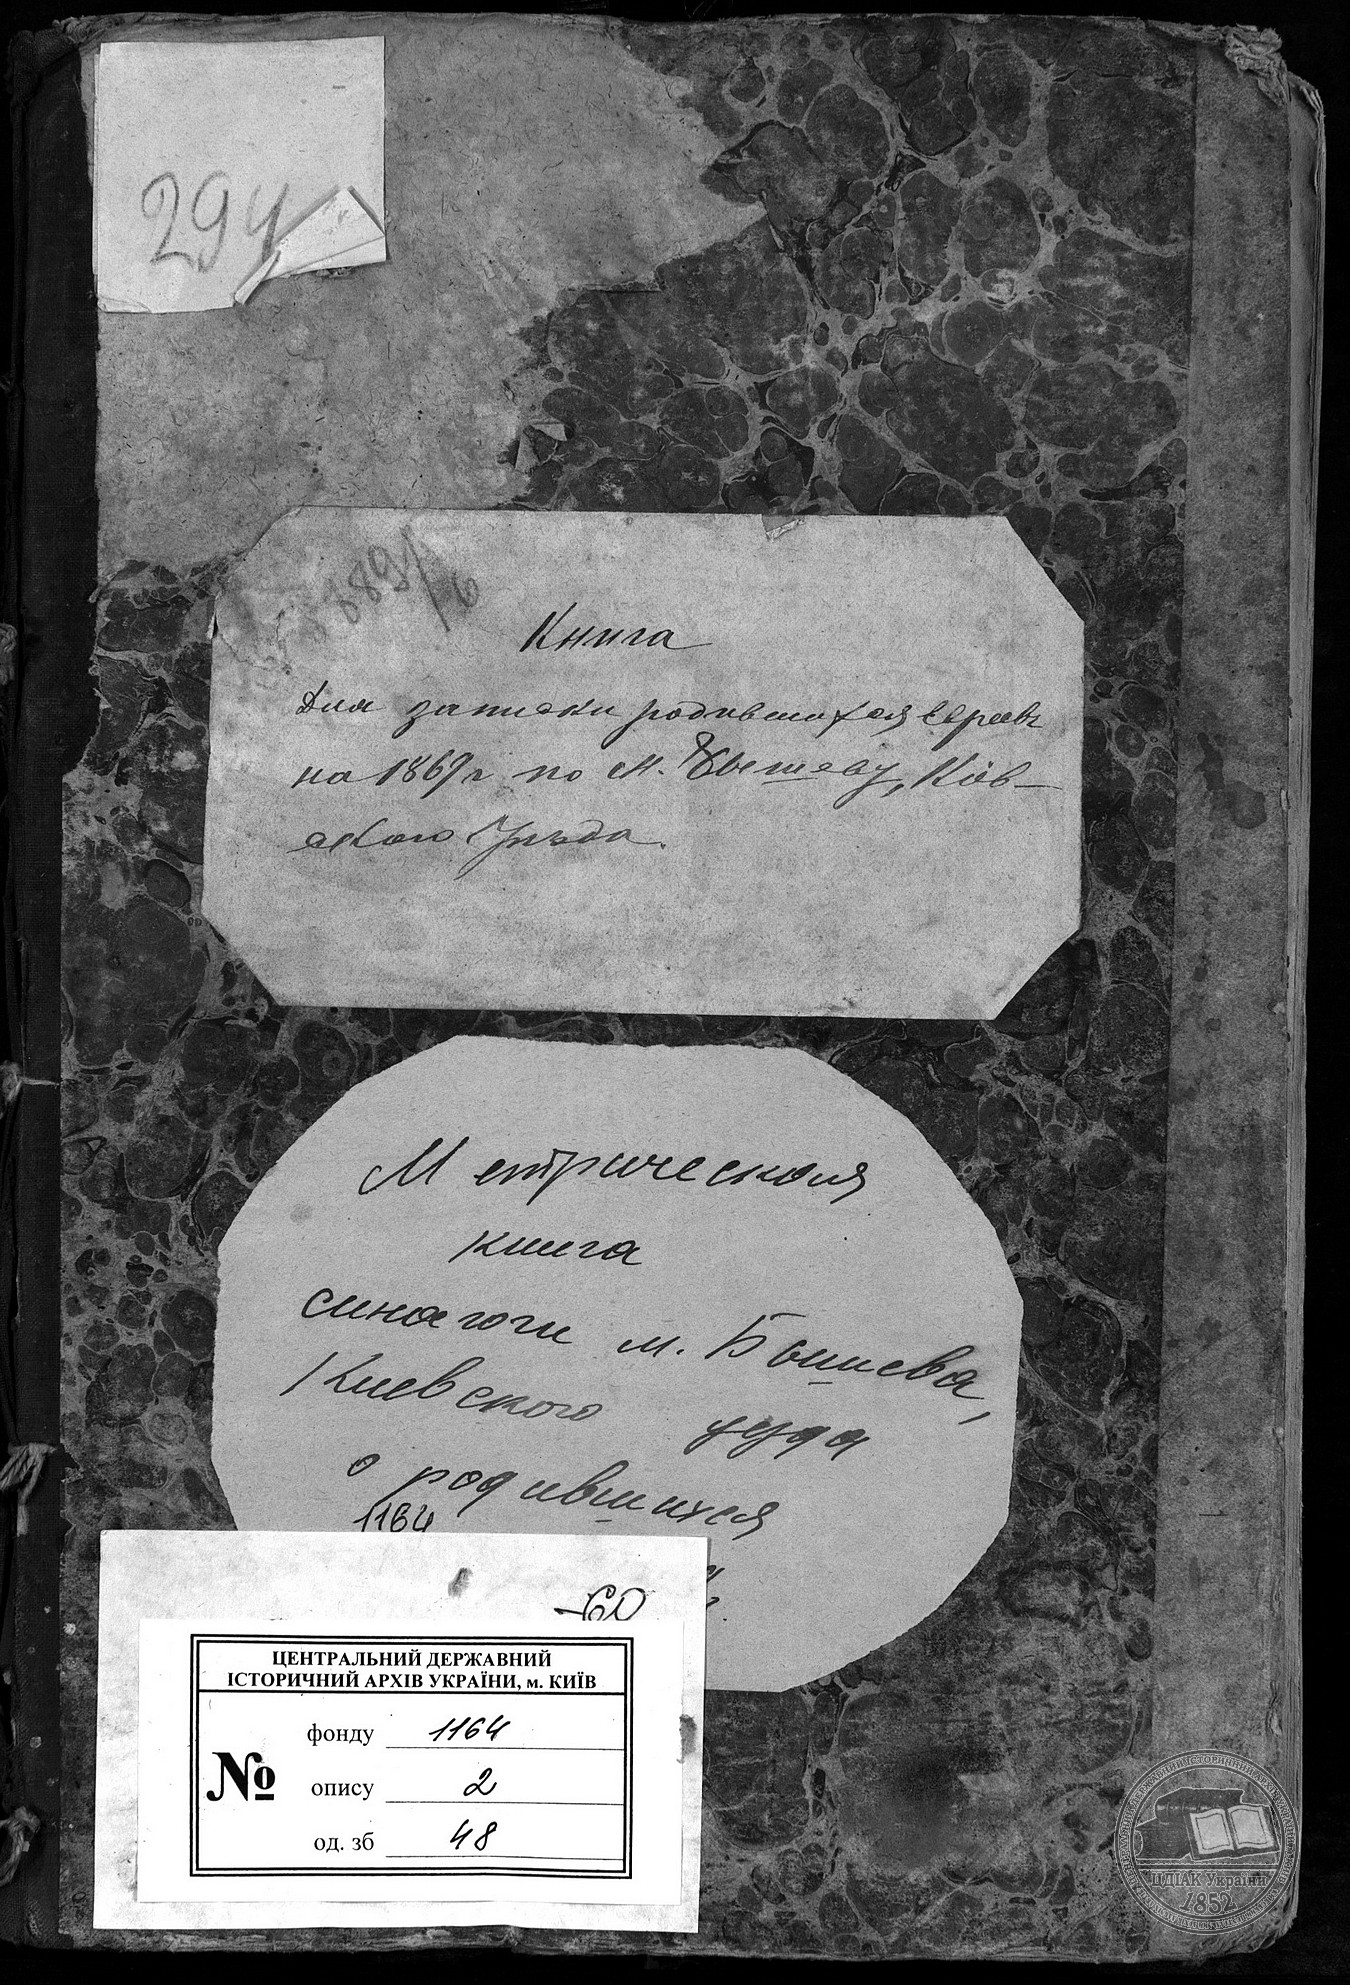 294
Книга
для записки родившихся евреев
на 1869 г по м. Бышеву, Кіев-
скаго Уезда.
Метрическая
книга
синагоги м. Бышева,
Киевского уезда
о родившихся
1164
60
ЦЕНТРАЛЬНИЙ ДЕРЖАВНИЙ
ІСТОРИЧНИЙ АРХІВ УКРАЇНИ, м. КИЇВ
фонду 1164
№
опису 2
од. зб 48
ЦДІАК України
1852